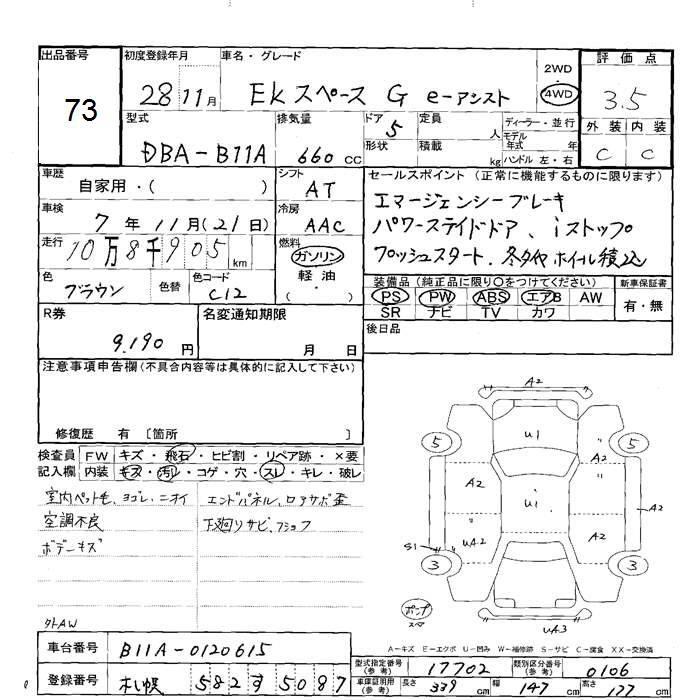 出品番号
73
初度登録年月
28 11月
車名・グレード
EKスペース G e-アシスト
2WD
4WD
評価点
3.5
外装 内装
C C
型式
DBA-B11A
排気量
660 CC
ドア 5
形状
定員 人
積載 kg
ディーラー・並行
モデル年式 年
ハンドル 左・右
車歴
自家用・( )
シフト
AT
車検
7年11月(21日)
冷房
AAC
走行
10万8千905 km
燃料
ガソリン
軽油
( )
色
ブラウン
色替
色コード
C12
セールスポイント (正常に機能するものに限ります)
エマージェンシーブレーキ
パワースライドドア、iストップ
プッシュスタート、冬タイヤホイール積込
装備品 (純正品に限り〇をつけてください)
PS PW ABS エアB AW
SR ナビ TV カワ
新車保証書
有・無
後日品
R券
9,190 円
名変通知期限
月 日
注意事項申告欄 (不具合内容等は具体的に記入して下さい)
修復歴 有 〔箇所 〕
検査員記入欄
FW キズ・飛石・ヒビ割・リペア跡・×要
内装 キズ・汚れ・コゲ・穴・スレ・キレ・破レ
室内ペット毛、ヨゴレ、ニオイ
空調不良
ボデーキズ
エンドパネル、ロアサポ歪
下廻りサビ、フショク
外AW
A2
U1
5 5
A2 A2
U1
A2
UA2 A2
S1
3 3
UA3
A-キズ E-エクボ U-凹み W-補修跡 S-サビ C-腐食 XX-交換済
車台番号
B11A-0120615
登録番号
札幌 582 す 5087
型式指定番号(参考)
17702
類別区分番号(参考)
0106
車庫証明用(参考)
長さ 339 cm 幅 147 cm 高さ 177 cm